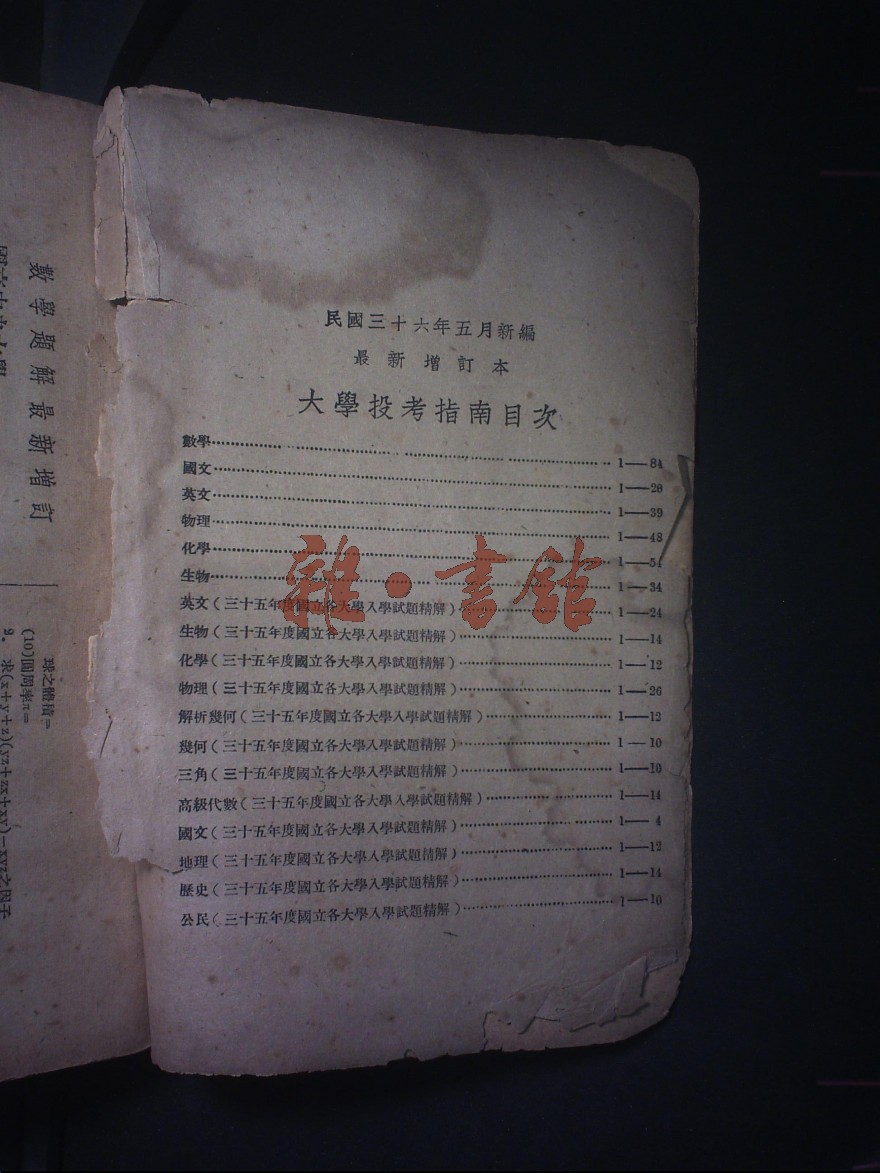 民國三十六年五月新編
最新增訂本
大學投考指南目次
數學 1—84
國文 1—28
英文 1—39
物理 1—48
化學 1—54
生物 1—34
英文(三十五年度國立各大學入學試題精解) 1—24
生物(三十五年度國立各大學入學試題精解) 1—14
化學(三十五年度國立各大學入學試題精解) 1—12
物理(三十五年度國立各大學入學試題精解) 1—26
解析幾何(三十五年度國立各大學入學試題精解) 1—12
幾何(三十五年度國立各大學入學試題精解) 1—10
三角(三十五年度國立各大學入學試題精解) 1—10
高級代數(三十五年度國立各大學入學試題精解) 1—14
國文(三十五年度國立各大學入學試題精解) 1—4
地理(三十五年度國立各大學入學試題精解) 1—12
歷史(三十五年度國立各大學入學試題精解) 1—14
公民(三十五年度國立各大學入學試題精解) 1—10
雜·書館
數學題解最新增訂
球之體積=
(10)圓周率π=
9. 求(x+y+z)(yz+zx+xy)-xyz之因子